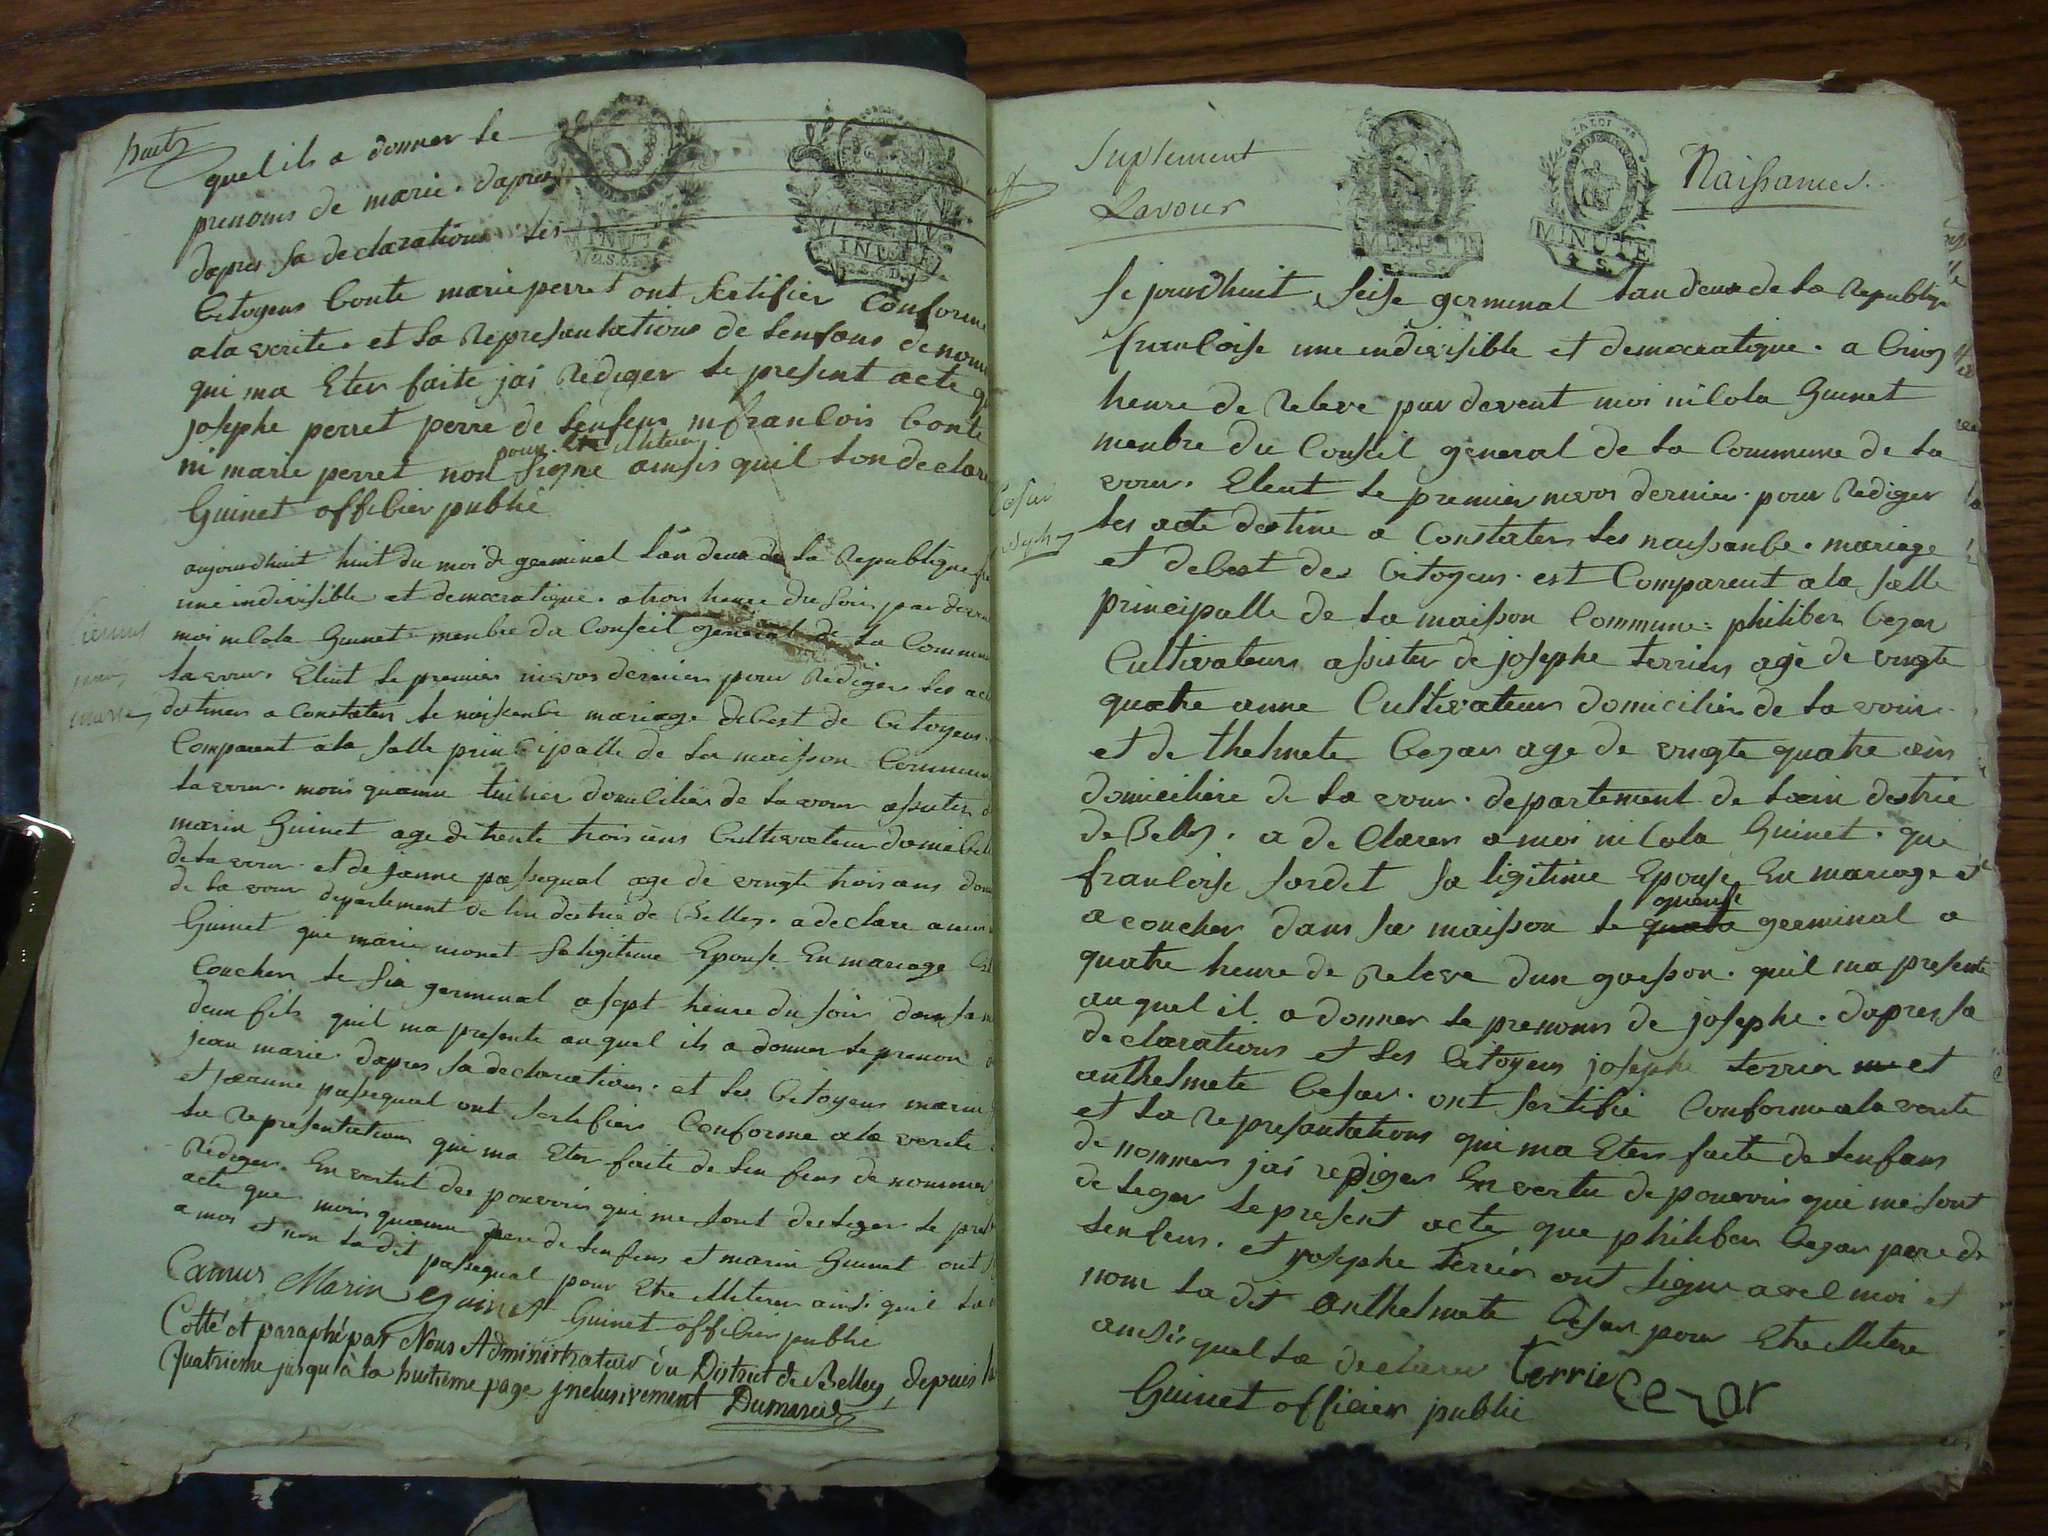 huit
quel ils a donner le
prenoms de marie. dapres
dapres sa declarations les
Citoyens Conte marie perret ont sertifier Conforme
a la verite. et la Represantations de lenfans de nom
qui ma Eter faite jai Rediger le present acte q
josephe perret perre de lenfens ni francois Conte
ni marie perret non pour Etre illiteres signe ainsis quil lon declare
Guinet officier publie
aujourdhuit huit du moi de germinal lan deux de la Republique fra
une indivisible et democratique. a trois heure du soir par devent
moi nicola Guinet menbre du Conseil general de la Commune
lavour. Eleut le premier nivos dernier pour Rediger les acte
destiner a Constater le naissenbe mariage debest de Citoyens.
Comparent a la salle principalle de la maisson Commune
lavour. domicilier de lavour assister de
marin Guinet age de trente trois ans Cultivateur domicilie
de lavour. et de janne passequal age de vingte trois ans dom
de lavour departement de lin destrie de Belley. a declare a moi
Guinet que marie monet sa ligitime Epouse En mariage
Coucher le six germinal a sept heure du soir dans sa m
deun fils quil ma presente au quel ils a donner le prenon
jean marie. dapres sa declarations. et les Citoyens marin
et jeanne passequal ont sertifier Conforme a la verite
la representations qui ma Eter faite de lenfens de nommer
Rediger. En vertut des pouvoirs qui me sont deleger le pres
acte que pere de lenfens et marin Guinet ont
a moi et non la dit passequal pour Etre illiterer ainsi quil la
Camus Marin guinet Guinet officier publie
Cotté et paraphé par Nous Administrateur du District de Belley, depuis la
Quatrieme jusqu'à la huitieme page jnclusivement
Suplement
Lavour
Naissances.
MINUTE
MINUTE
Cesar
joseph
Se jourdhuit seise germinal lan deux de la Republique
francoise une indivisible et democratique. a Cinq
heure de Releve par devent moi nicola Guinet
menbre du Conseil general de la Commune de la
vour. Eleut le premier nivos dernier. pour Rediger
les acte destine a Constater les naissanbe. mariage
et debest des Citoyens. est Comparent a la salle
principalle de la maisson Commune. philiber Cezar
Cultivateur assister de josephe terrier agé de vingte
quatre anne Cultivateur domicilier de la vour.
et de thelmete Cezar age de vingte quatre ans
domiciliere de la vour. departement de lain destrie
de Belley. a de Clarer a moi nicola Guinet. que
francoise sordet sa ligitime Epouse En mariage et
a coucher dans sa maisson le quense germinal a
quatre heure de Releve dun gaisson. quil ma presente
au quel il a donner le prenoms de josephe. dapres sa
declarations et les Citoyens josephe terrier et
anthelmete Cesar. ont sertifie Conforme a la verite
et la represantations qui ma Eter faite de lenfans
de nommer jai rediger En vertu de pouvoir qui me sont
de leger le present acte que philiber Cezar pere de
lenfens. et josephe terrier ont signe avec moi et
nom la dit anthelmete Cesar pour Etre illitere
ainsi quel la declarer Terrier Cezar
Guinet officier publie